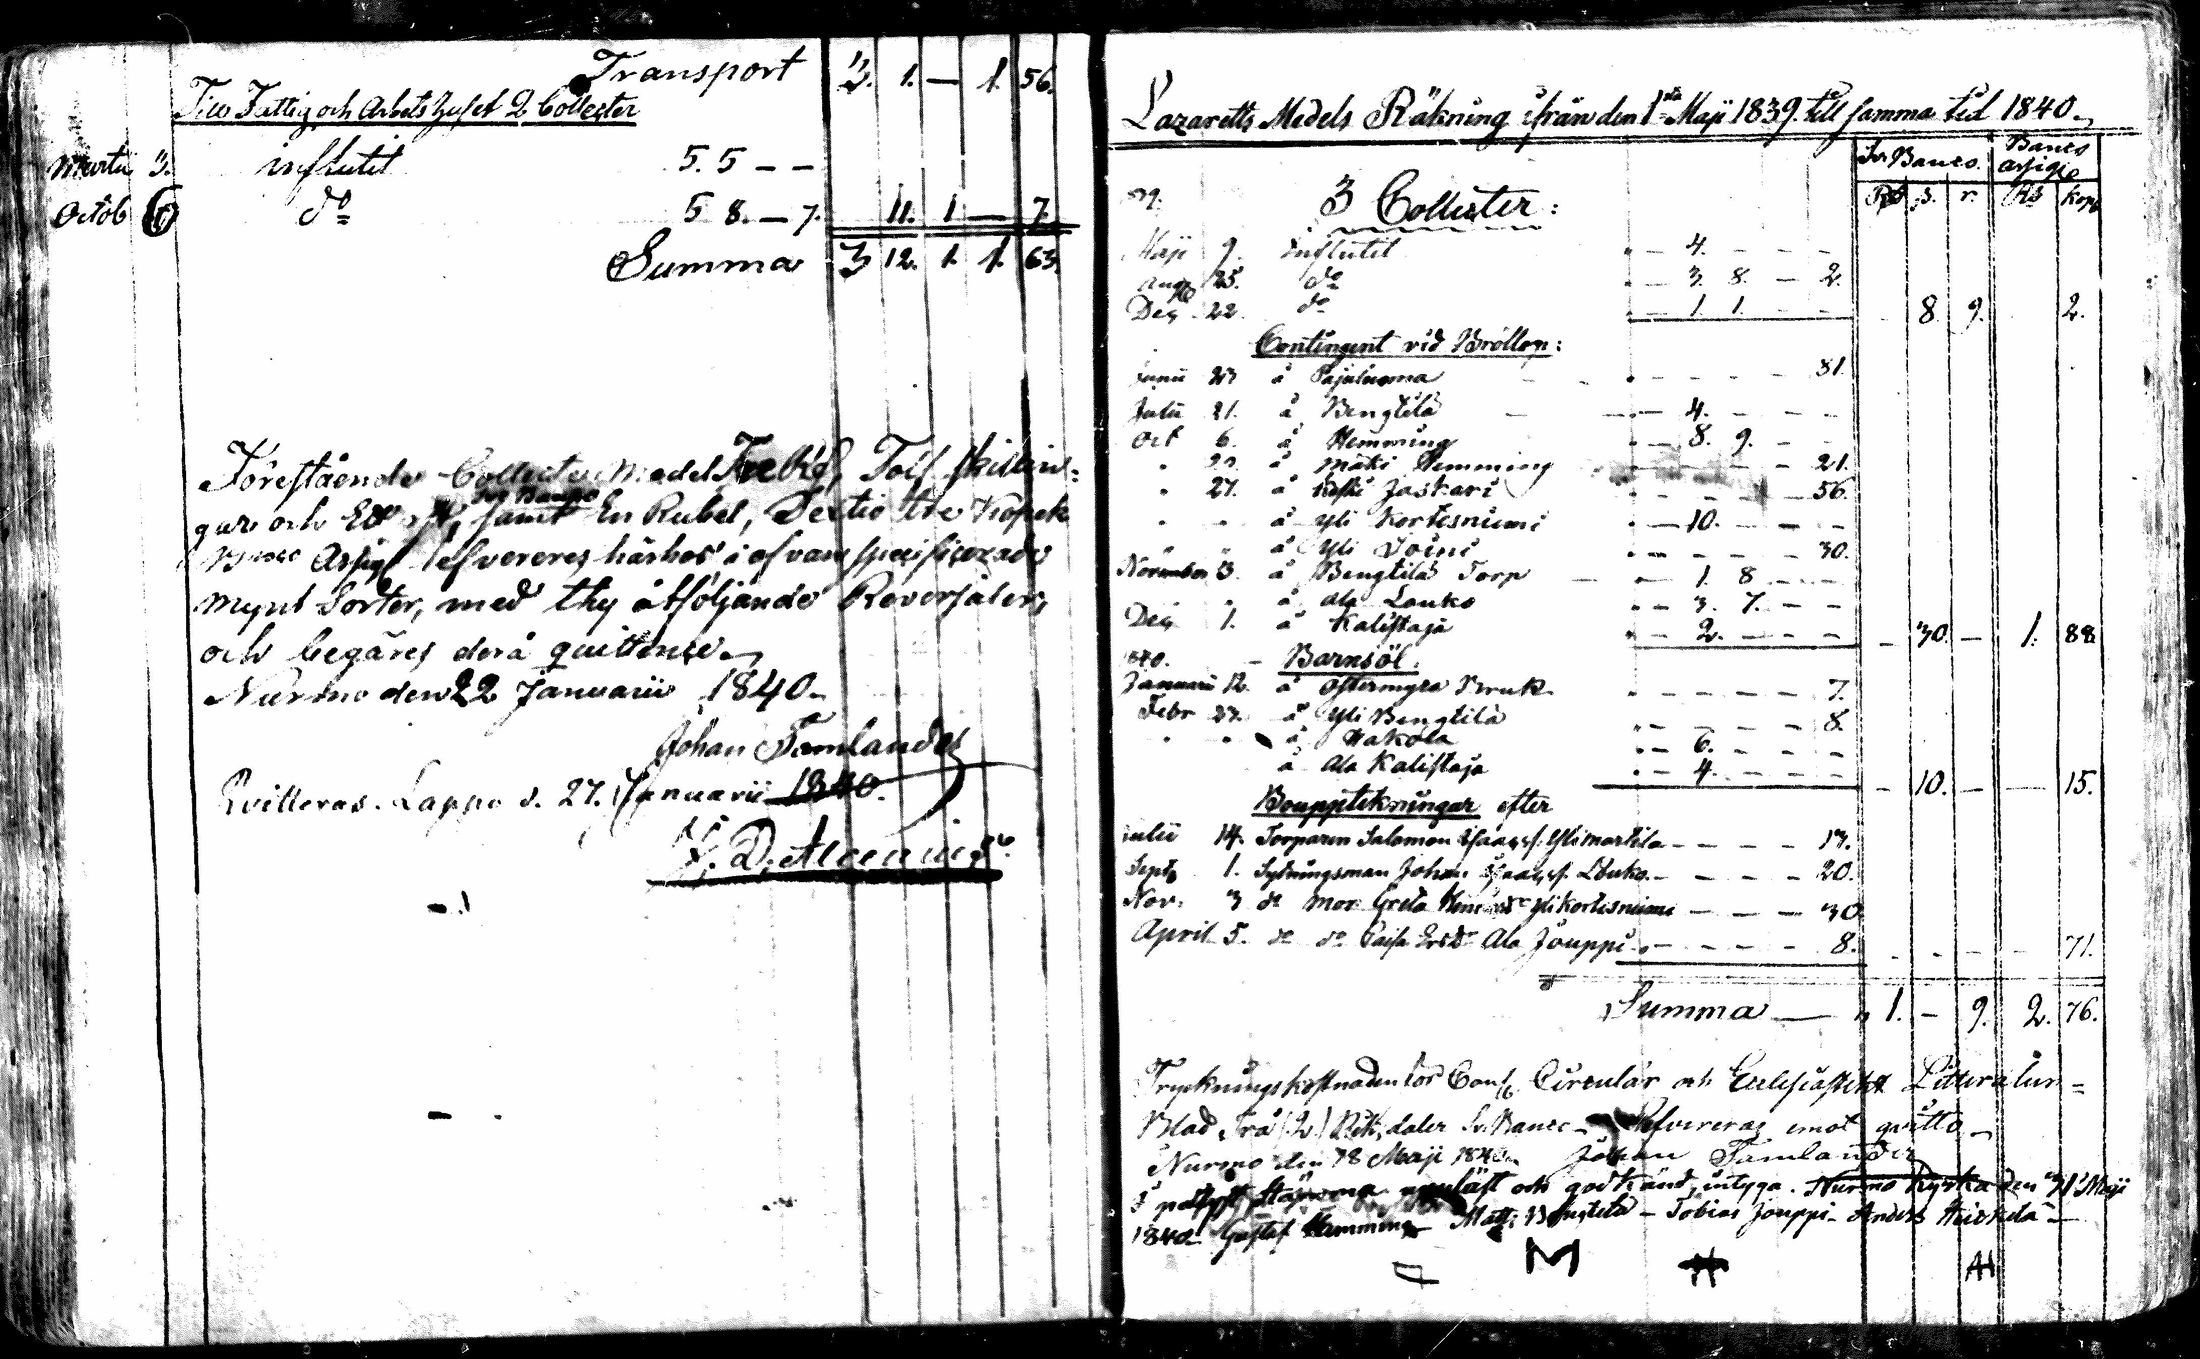 Transport 2. 1. — 1. 56.
Till Fattig och Arbetshuset 2 Collecter
Martii 3. influtit 5. 5 — —
Octob 6 do 5 8. — 7. 11. 1 — 7.
Summa 3 12. 1. 1. 63.
Förestående Collecte Medel Tre Rd, Tolf skillin-
gar och Ett samt En Rubel, Sextio tre Kopek
Sv Banco
Banco Assign lefvereres härhos i ofvan specificerade
mynt Sorter, med thy åtföljande Reversaler,
och begäres derå quittence.
Nurmo den 22 Januarii 1840.
Johan Tamlander
Qvitteras. Lappo d. 27. Januarii 1840.
Lazaretts Medels Räkning ifrån den 1sta Maji 1839. till samma tid 1840.
Sv Banco. Banco assign
Rd s. r. Rb kop
39. 3 Collecter:
Maji 9. influtit " — 4. — — —
Aug 25. do " — 3. 8. — 2.
Dec 22. do " — 1. 1. — — 8. 9. 2.
Contingent vid Bröllop:
Junii 23 å Pajuluoma " — — — — 81.
Julii 21. å Bengtilä — 4. — — —
Oct 6. å Hemming " — 8. 9. — —
å Mäki Hemming — 21.
" 27. å Keski Jaskari — 56.
" " å Yli Kortesniemi " — 10. — — —
å Yli Joini — 30.
November 3. å Bengtilä Torp " — 1. 8 — —
å Ala Louko " — 3. 7. — —
Dec 1. å Kalistaja " — 2. — — — — 30. — 1. 88
1840. — Barnsöl.
Januarii 12. å Östermyra Bruk " — — — — 7.
Febr 23. å Yli Bengtilä " — — — — 8.
" " å Hakola " — 6. — — —
å Ala Kalistaja " — 4. — — — — 10. — — 15.
Bouppteckningar efter
Julii 14. Torparen Salomon Isaacsf. Ylimartila — — — — 13.
Sept 1. Sytningsman Johan Isaacsf. Louko. — — — — 20.
Nov. 3 do mor Greta Ylikortesniemi — — — 30
April 5. do do Caisa Ala Jouppi — — — — 8. 71.
Summa — " 1. — 9. 2. 76.
Tryckningskostnaden för Cons. Circulär och Ecclesiastikt Litteratur=
Blad Två (2) Rik,daler Sv. Banco — lefvereras emot qvitto
Nurmo den 18 Maji 1840. Johan Tamlander
stämma uppläst och godkänd, intyga. Nurmo Kyrka den 31 Maji
1840 Gustaf Hemming — Matts Bengtilä — Tobias Jouppi — Anders Heickelä —
M H AH